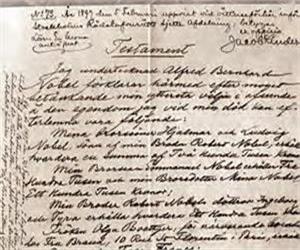 N:o 73. År 1897 den 5 Februari uppvist vid vittnesförhör inför
Stockholms Rådstufvurätts
betygar
Lösen: En krona
ex officio
Testament
Jag undertecknad Alfred Bernhard
Nobel förklarar härmed efter moget
betänkande min yttersta vilja i afseende
egendom jag vid min död kan ef-
terlemna vara följande:
Mina Brorsöner Hjalmar och Ludvig
Nobel, söner af min Broder Robert Nobel, erhålla
hvardera en summa af Två Hundra Tusen Kronor;
Min Brorson Emmanuel Nobel erhåller Tre
Hundra Tusen och min Brorsdotter Mina Nobel
Ett Hundra Tusen Kronor;
Min Broder Robert Nobels döttrar Ingeborg
och Tyra erhålla hvardera Ett Hundra Tusen
Fröken Olga Boettger, för närvarande boende
hos Fru Brand, 10 Rue St Florentin, Paris,